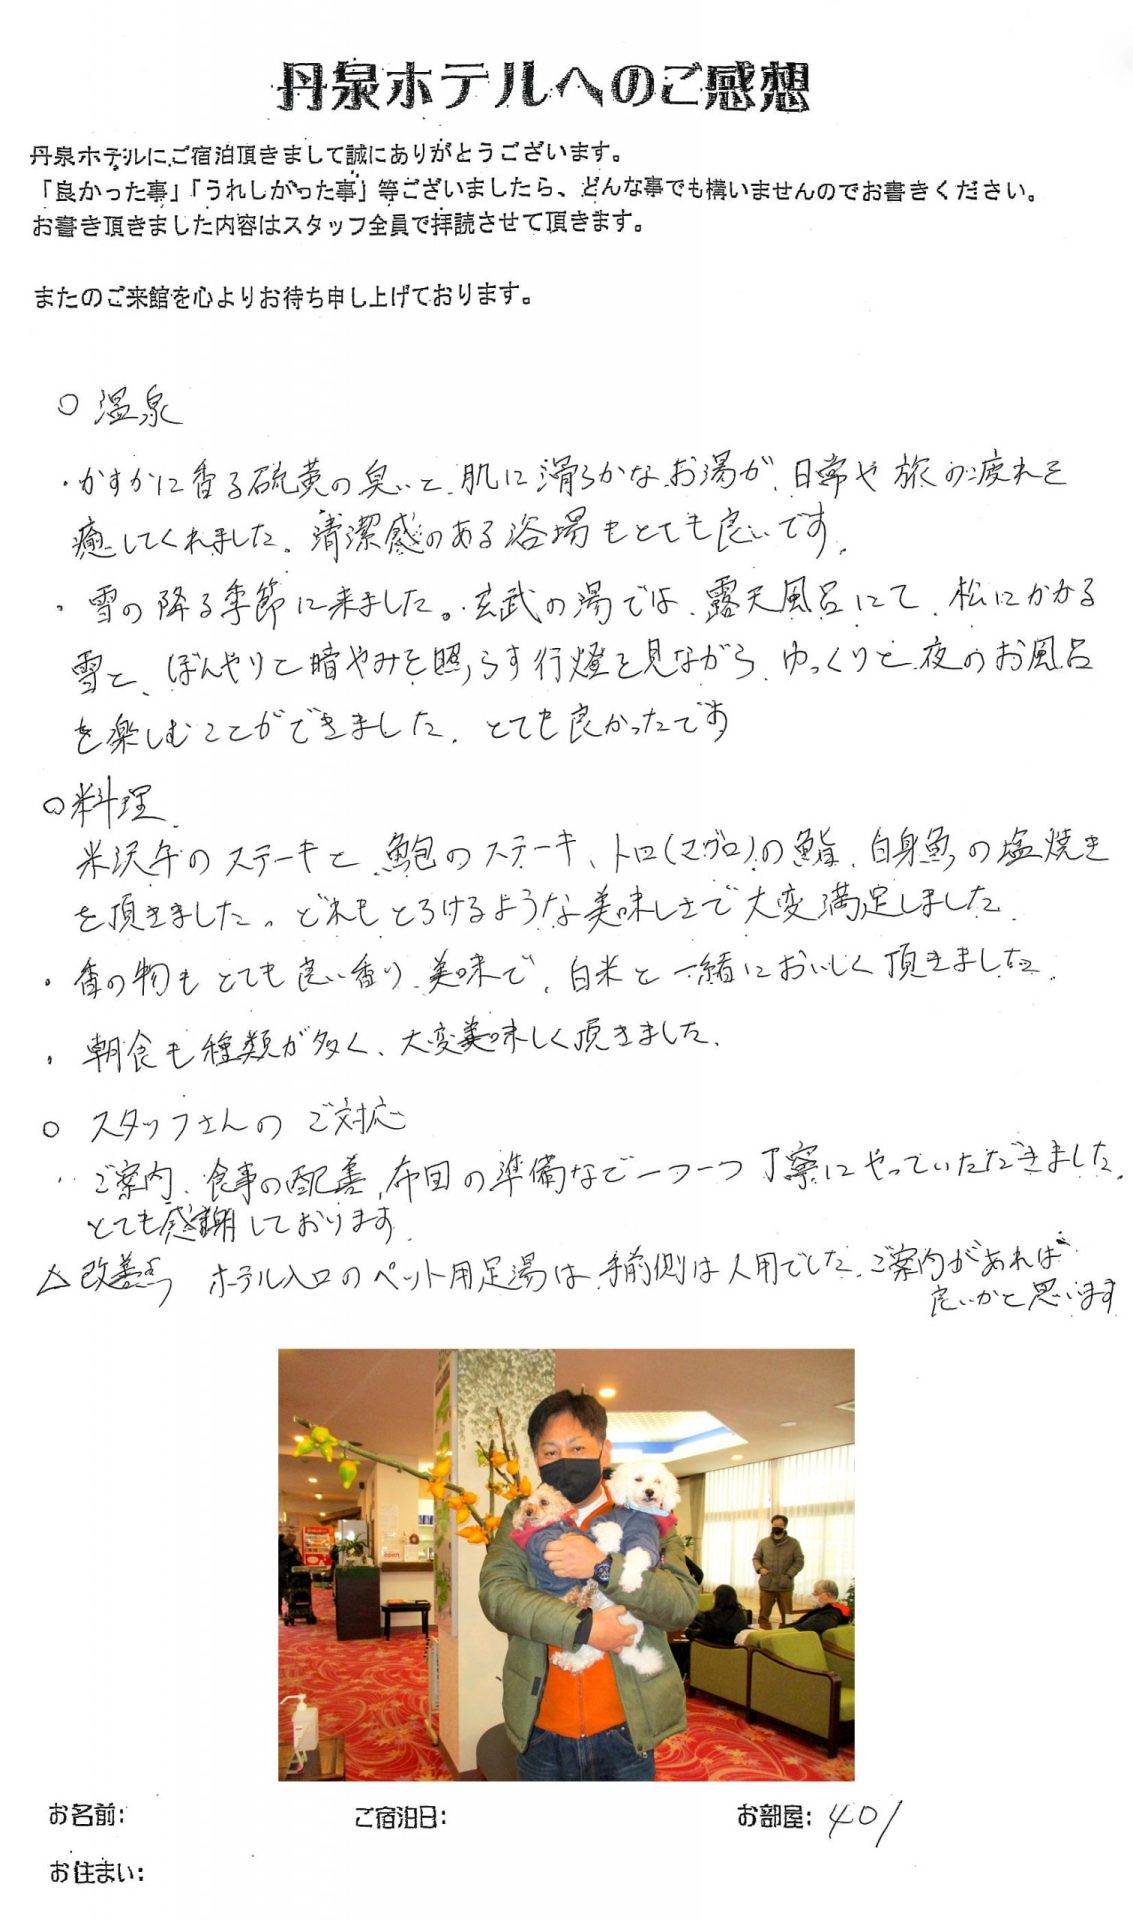 丹泉ホテルへのご感想
丹泉ホテルにご宿泊頂きまして誠にありがとうございます。
「良かった事」「うれしかった事」等ございましたら、どんな事でも構いませんのでお書きください。
お書き頂きました内容はスタッフ全員で拝読させて頂きます。
またのご来館を心よりお待ち申し上げております。
○ 温泉
・かすかに香る硫黄の臭いと、肌に滑らかなお湯が、日常や旅の疲れを
癒してくれました。清潔感のある浴場もとても良いです。
・雪の降る季節に来ました。玄武の湯では、露天風呂にて、松にかかる
雪と、ぼんやりと暗やみを照らす行燈を見ながら、ゆっくりと夜のお風呂
を楽しむことができました。とても良かったです
○料理
米沢牛のステーキと、鮑のステーキ、トロ(マグロ)の鮨、白身魚の塩焼き
を頂きました。どれもとろけるような美味しさで大変満足しました。
・香の物もとても良い香り、美味で、白米と一緒においしく頂きました。
・朝食も種類が多く、大変美味しく頂きました。
○ スタッフさんのご対応
・ご案内、食事の配善、布団の準備など一つ一つ丁寧にやっていただきました。
とても感謝しております。
△改善点 ホテル入口のペット用足湯は、手前側は人用でした。ご案内があれば
良いかと思います
お名前:
ご宿泊日:
お部屋: 401
お住まい: